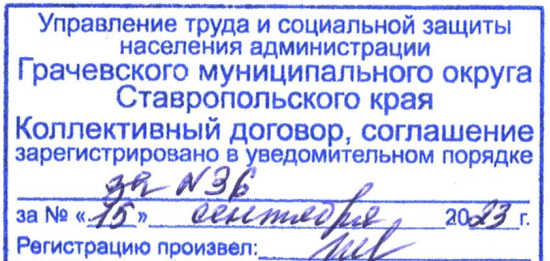 Управление труда и социальной защиты
населения администрации
Грачевского муниципального округа
Ставропольского края
Коллективный договор, соглашение
зарегистрировано в уведомительном порядке
за №36
за № «15» сентября 2023 г.
Регистрацию произвел: